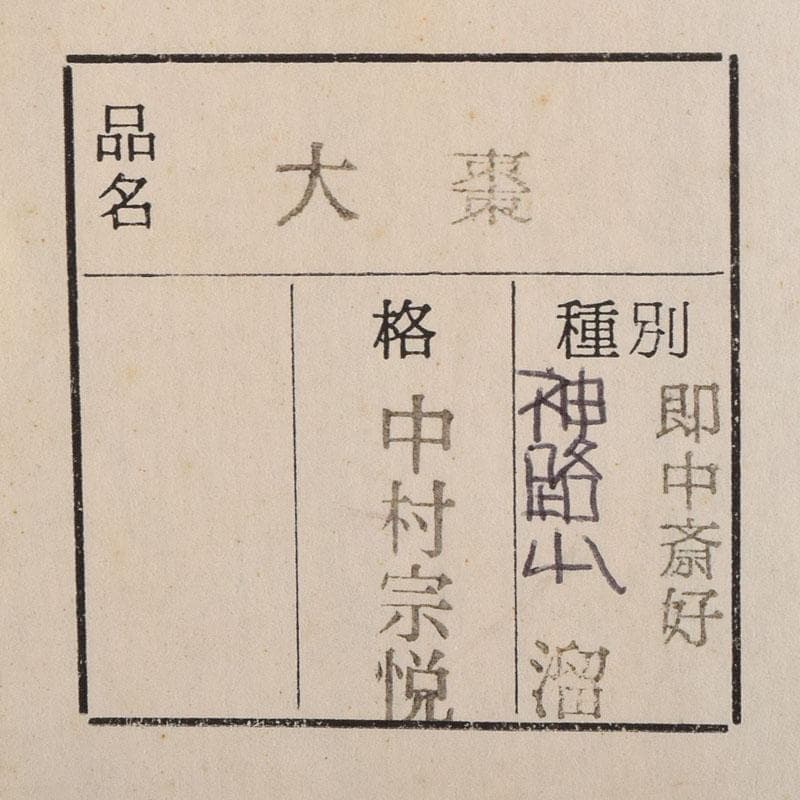 品名
大棗
種別
即中斎好
神路山
溜
格
中村宗悦